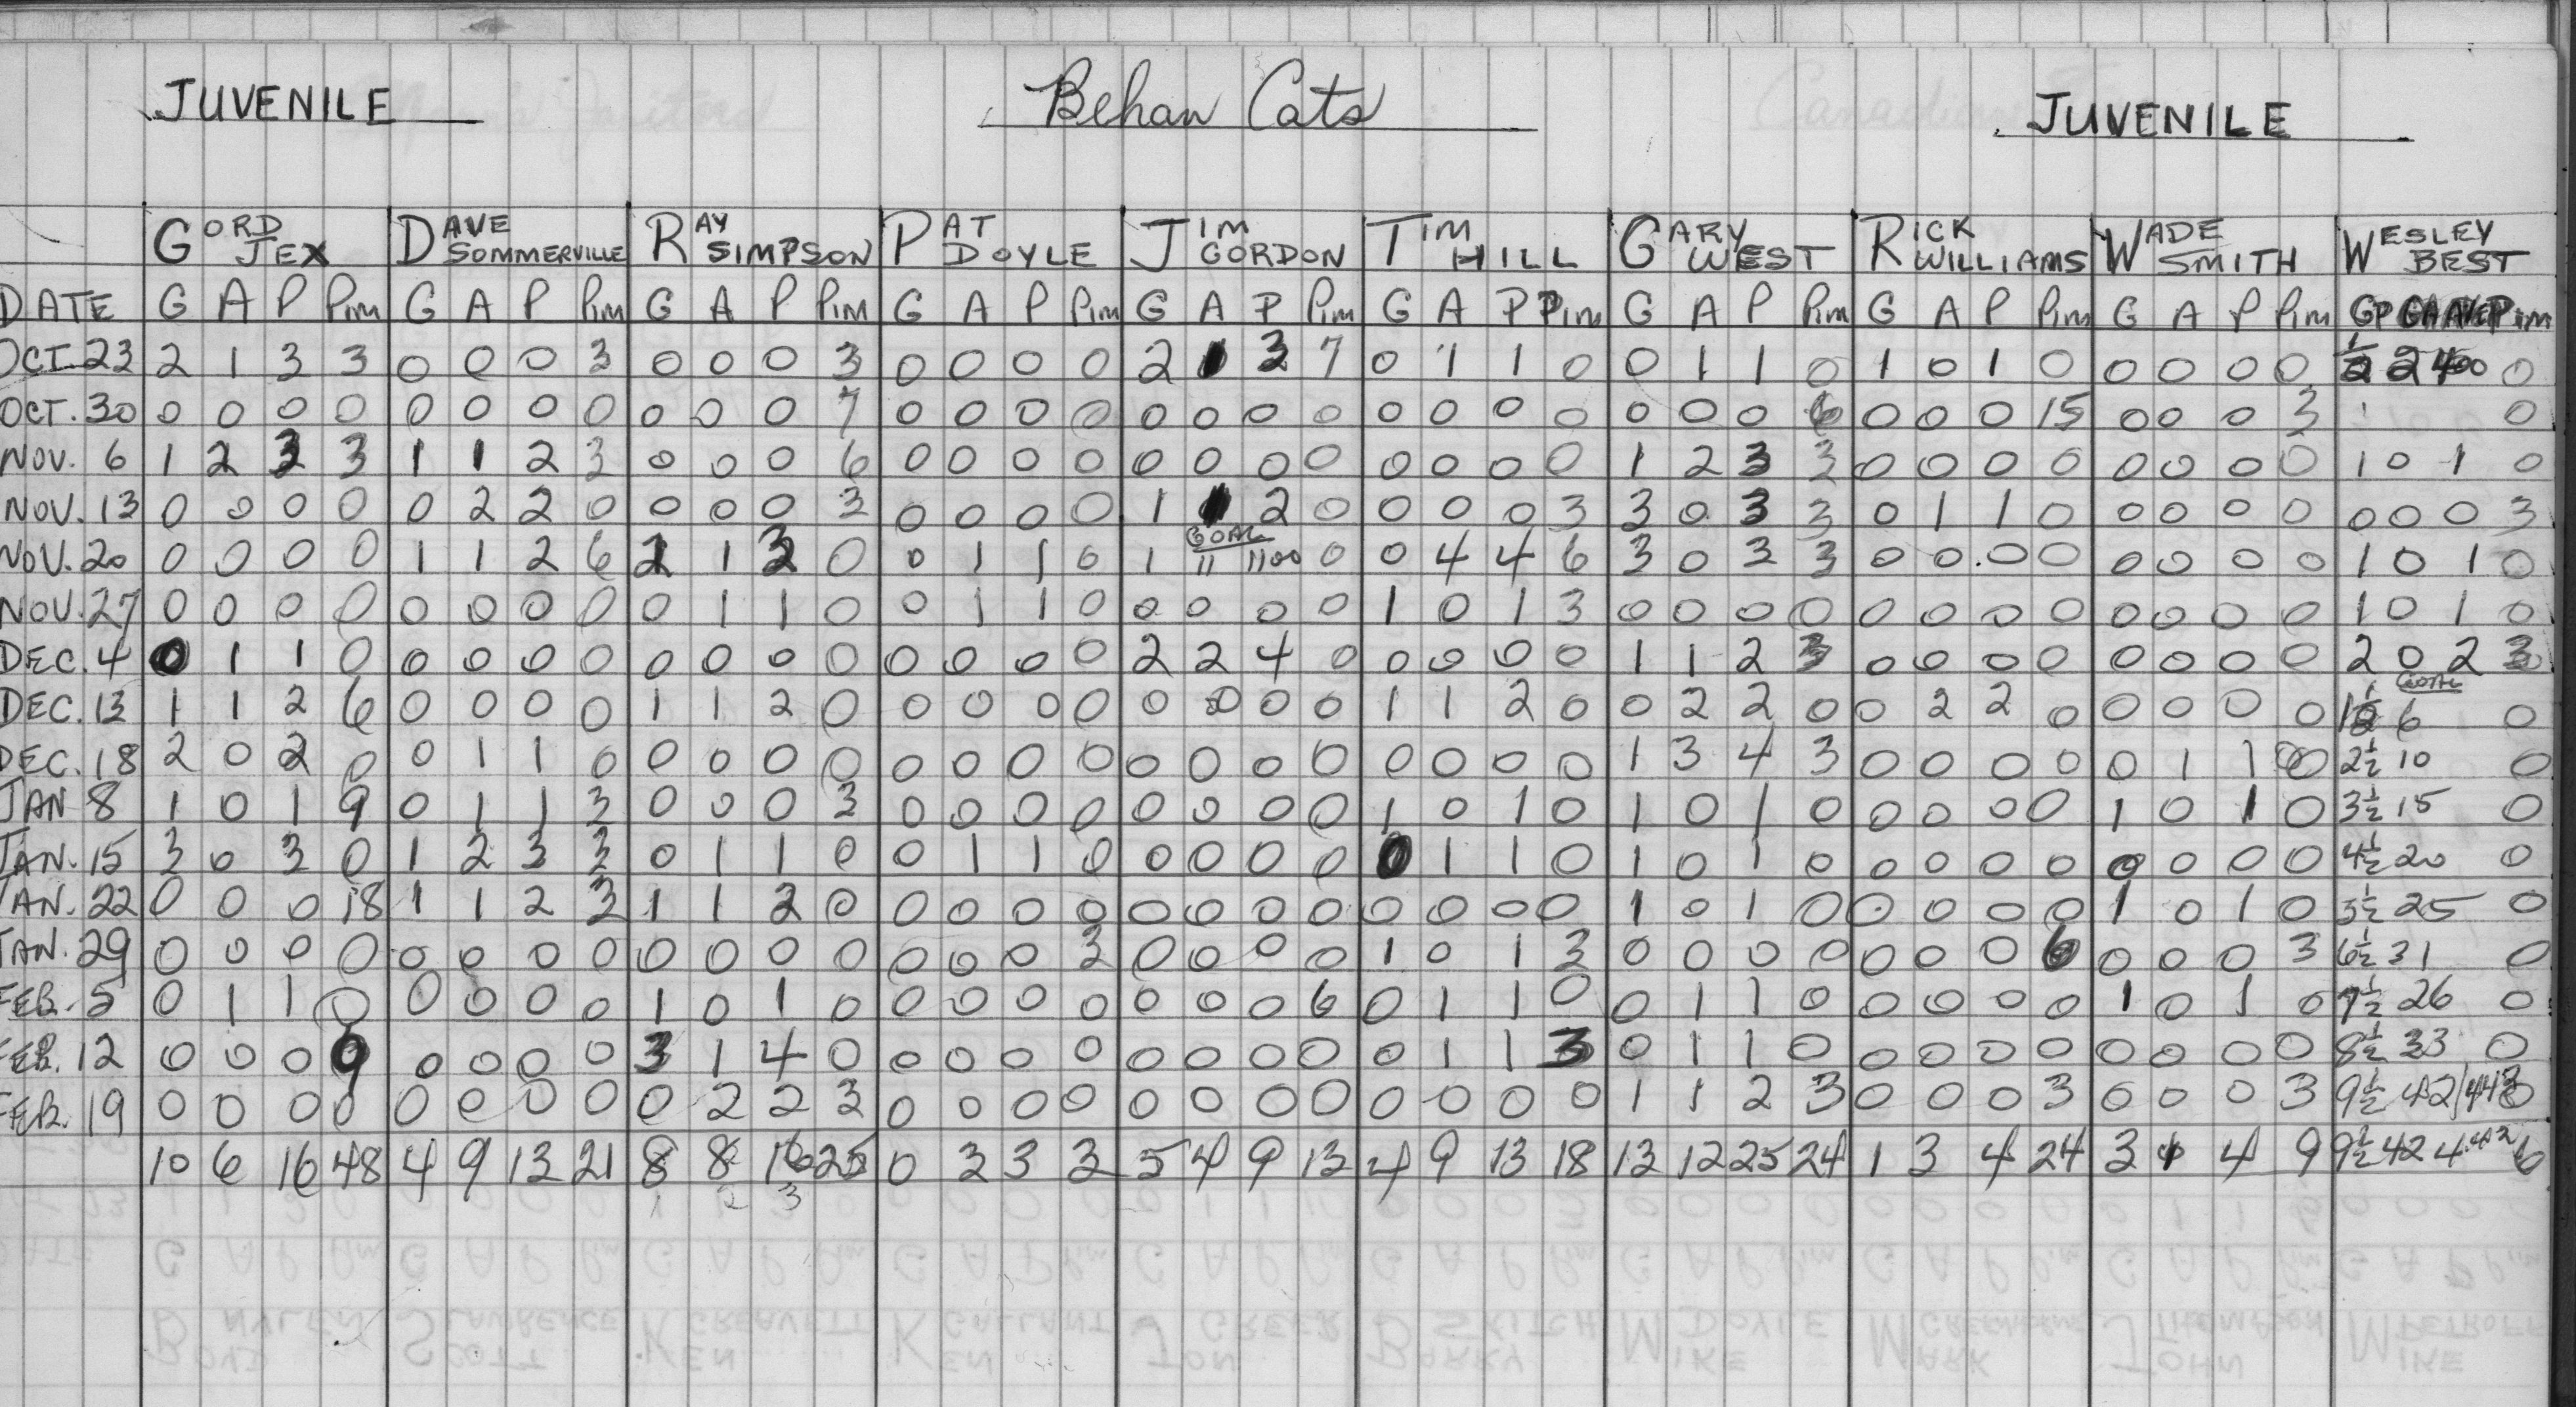 JUVENILE Behan Cats JUVENILE
GORD JEX DAVE SOMMERVILLE RAY SIMPSON PAT DOYLE JIM GORDON TIM HILL GARY WEST RICK WILLIAMS WADE SMITH WESLEY BEST
DATE G A P Pim G A P Pim G A P Pim G A P Pim G A P Pim G A P Pim G A P Pim G A P Pim G A P Pim GP GA AVE Pim
OCT. 23 2 1 3 3 0 0 0 3 0 0 0 3 0 0 0 0 2 1 3 7 0 1 1 0 0 1 1 0 1 0 1 0 0 0 0 0 1/2 2 400 0
OCT. 30 0 0 0 0 0 0 0 0 0 0 0 7 0 0 0 0 0 0 0 0 0 0 0 0 0 0 0 6 0 0 0 15 0 0 0 3 0
NOV. 6 1 2 3 3 1 1 2 3 0 0 0 6 0 0 0 0 0 0 0 0 0 0 0 0 1 2 3 3 0 0 0 0 0 0 0 0 1 0 1 0
NOV. 13 0 0 0 0 0 2 2 0 0 0 0 3 0 0 0 0 1 1 2 0 0 0 0 3 3 0 3 3 0 1 1 0 0 0 0 0 0 0 0 3
NOV. 20 0 0 0 0 1 1 2 6 2 1 3 0 0 1 1 0 1 GOAL 11 1100 0 0 4 4 6 3 0 3 3 0 0 0 0 0 0 0 0 1 0 1 0
NOV. 27 0 0 0 0 0 0 0 0 0 1 1 0 0 1 1 0 0 0 0 0 1 0 1 3 0 0 0 0 0 0 0 0 0 0 0 0 1 0 1 0
DEC. 4 0 1 1 0 0 0 0 0 0 0 0 0 0 0 0 0 2 2 4 0 0 0 0 0 1 1 2 3 0 0 0 0 0 0 0 0 2 0 2 3
DEC. 13 1 1 2 6 0 0 0 0 1 1 2 0 0 0 0 0 0 0 0 0 1 1 2 0 0 2 2 0 0 2 2 0 0 0 0 0 1 1/2 GOAL 6 0
DEC. 18 2 0 2 0 0 1 1 0 0 0 0 0 0 0 0 0 0 0 0 0 0 0 0 0 1 3 4 3 0 0 0 0 0 1 1 0 2 1/2 10 0
JAN 8 1 0 1 9 0 1 1 3 0 0 0 3 0 0 0 0 0 0 0 0 1 0 1 0 1 0 1 0 0 0 0 0 1 0 1 0 3 1/2 15 0
JAN. 15 3 0 3 0 1 2 3 3 0 1 1 0 0 1 1 0 0 0 0 0 0 1 1 0 1 0 1 0 0 0 0 0 0 0 0 0 4 1/2 20 0
JAN. 22 0 0 0 18 1 1 2 3 1 1 2 0 0 0 0 0 0 0 0 0 0 0 0 0 1 0 1 0 0 0 0 0 1 0 1 0 5 1/2 25 0
JAN. 29 0 0 0 0 0 0 0 0 0 0 0 0 0 0 0 3 0 0 0 0 1 0 1 3 0 0 0 0 0 0 0 6 0 0 0 3 6 1/2 31 0
FEB. 5 0 1 1 0 0 0 0 0 1 0 1 0 0 0 0 0 0 0 0 6 0 1 1 0 0 1 1 0 0 0 0 0 1 0 1 0 7 1/2 26 0
FEB. 12 0 0 0 9 0 0 0 0 3 1 4 0 0 0 0 0 0 0 0 0 0 1 1 3 0 1 1 0 0 0 0 0 0 0 0 0 8 1/2 33 0
FEB. 19 0 0 0 0 0 0 0 0 0 2 2 3 0 0 0 0 0 0 0 0 0 0 0 0 1 1 2 3 0 0 0 3 0 0 0 3 9 1/2 42 0
10 6 16 48 4 9 13 21 8 8 16 25 0 3 3 3 5 4 9 13 4 9 13 18 13 12 25 24 1 3 4 24 3 1 4 9 9 1/2 42 4.42 6
1 2 3